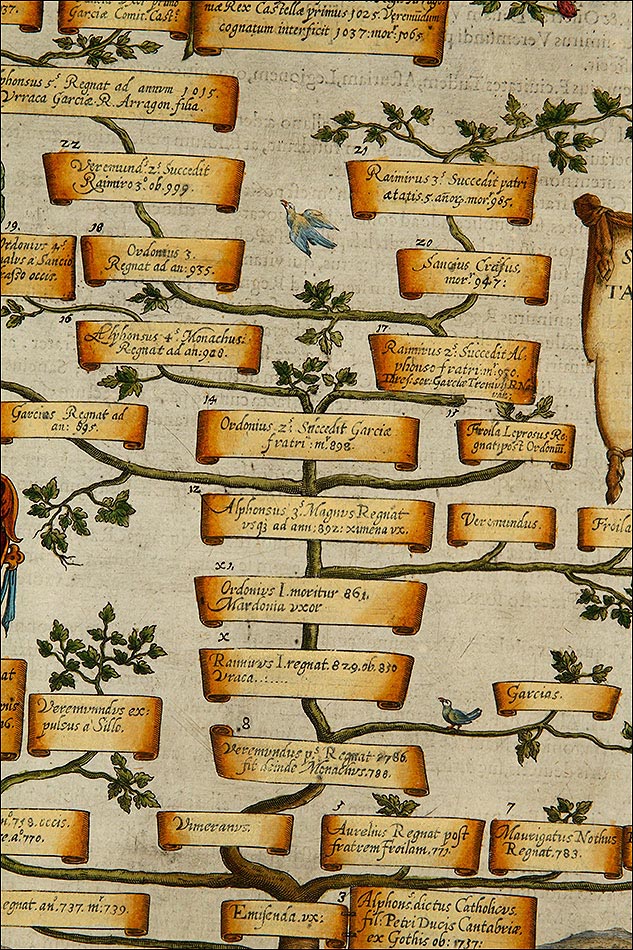 Garciæ Comit. Castᵉ
mæ Rex Castellæ primus 1025. Veremundum
cognatum interficit 1037: mor: 1065.
phonsus 5.ˢ Regnat ad annum 1015.
Vrraca Garciæ R. Arragon. filia.
22
Veremundˢ. 2.ˢ Succedit
Raimiro 3.º ob. 999.
21
Raimirus 3.ˢ Succedit patri
ætatis 5. año: mor. 985.
19.
Ordonius 4.ˢ
a Sancio
rasso occis.
18
Ordonius 3.
Regnat ad an: 935.
20
Sancius Crasus,
morˢ 947:
16
Alphonsus 4.ˢ Monachus:
Regnat ad an: 928.
17.
Raimirus 2.ˢ Succedit Al-
phonso fratri: mˢ 930.
Garcias Regnat ad
an: 895.
14
Ordonius 2.ˢ Succedit Garciæ
fratri: mˢ 898.
15
Froila Leprosus Re-
gnat post Ordoniū.
12
Alphonsus 3.ˢ Magnus Regnat
vsq3 ad ann: 892: ximena vx.
Veremundus.
Froila
x1.
Ordonius I. moritur 861.
Mardonia vxor
x
Raimirus I. regnat. 829. ob. 850
Vraca......
Garcias.
Veremundus ex:
pulsus a Sillo.
8
Veremundus pˢ Regnat 786.
fit deinde Monacus. 788.
758. occis.
aº. 770.
Vimeranus.
5
Aurelius Regnat post
fratrem Froilam. 771.
7
Maurigatus Nothus
Regnat. 783.
egnat. an: 737. mˢ. 739.
Emisenda. vx:
3
Alphonsˢ. dictus Catholicus.
fil: Petri Ducis Cantabriæ,
ex Gothis ob: 1737.